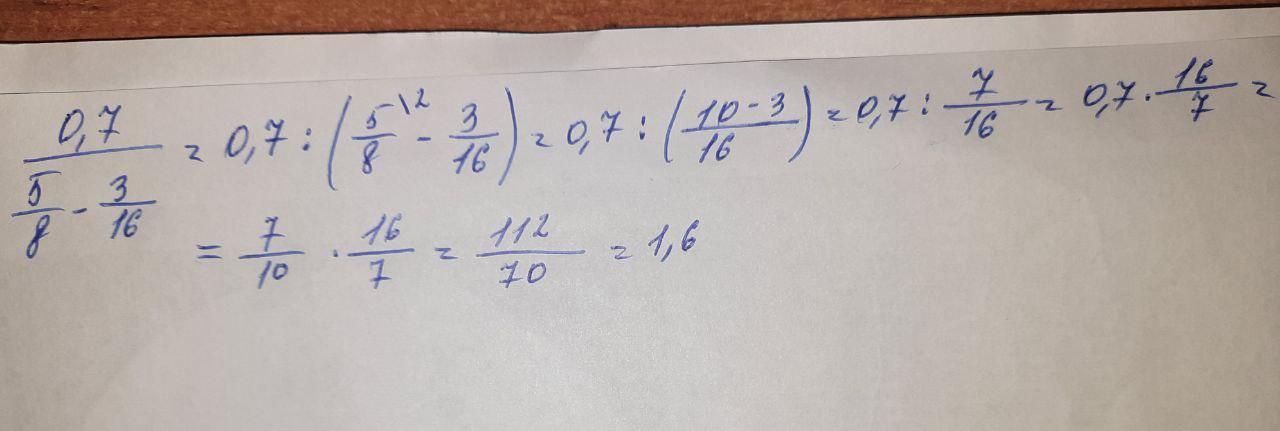 0,7/(5/8 - 3/16) = 0,7 : (5\2/8 - 3/16) = 0,7 : ((10-3)/16) = 0,7 : 7/16 = 0,7 · 16/7 =
= 7/10 · 16/7 = 112/70 = 1,6